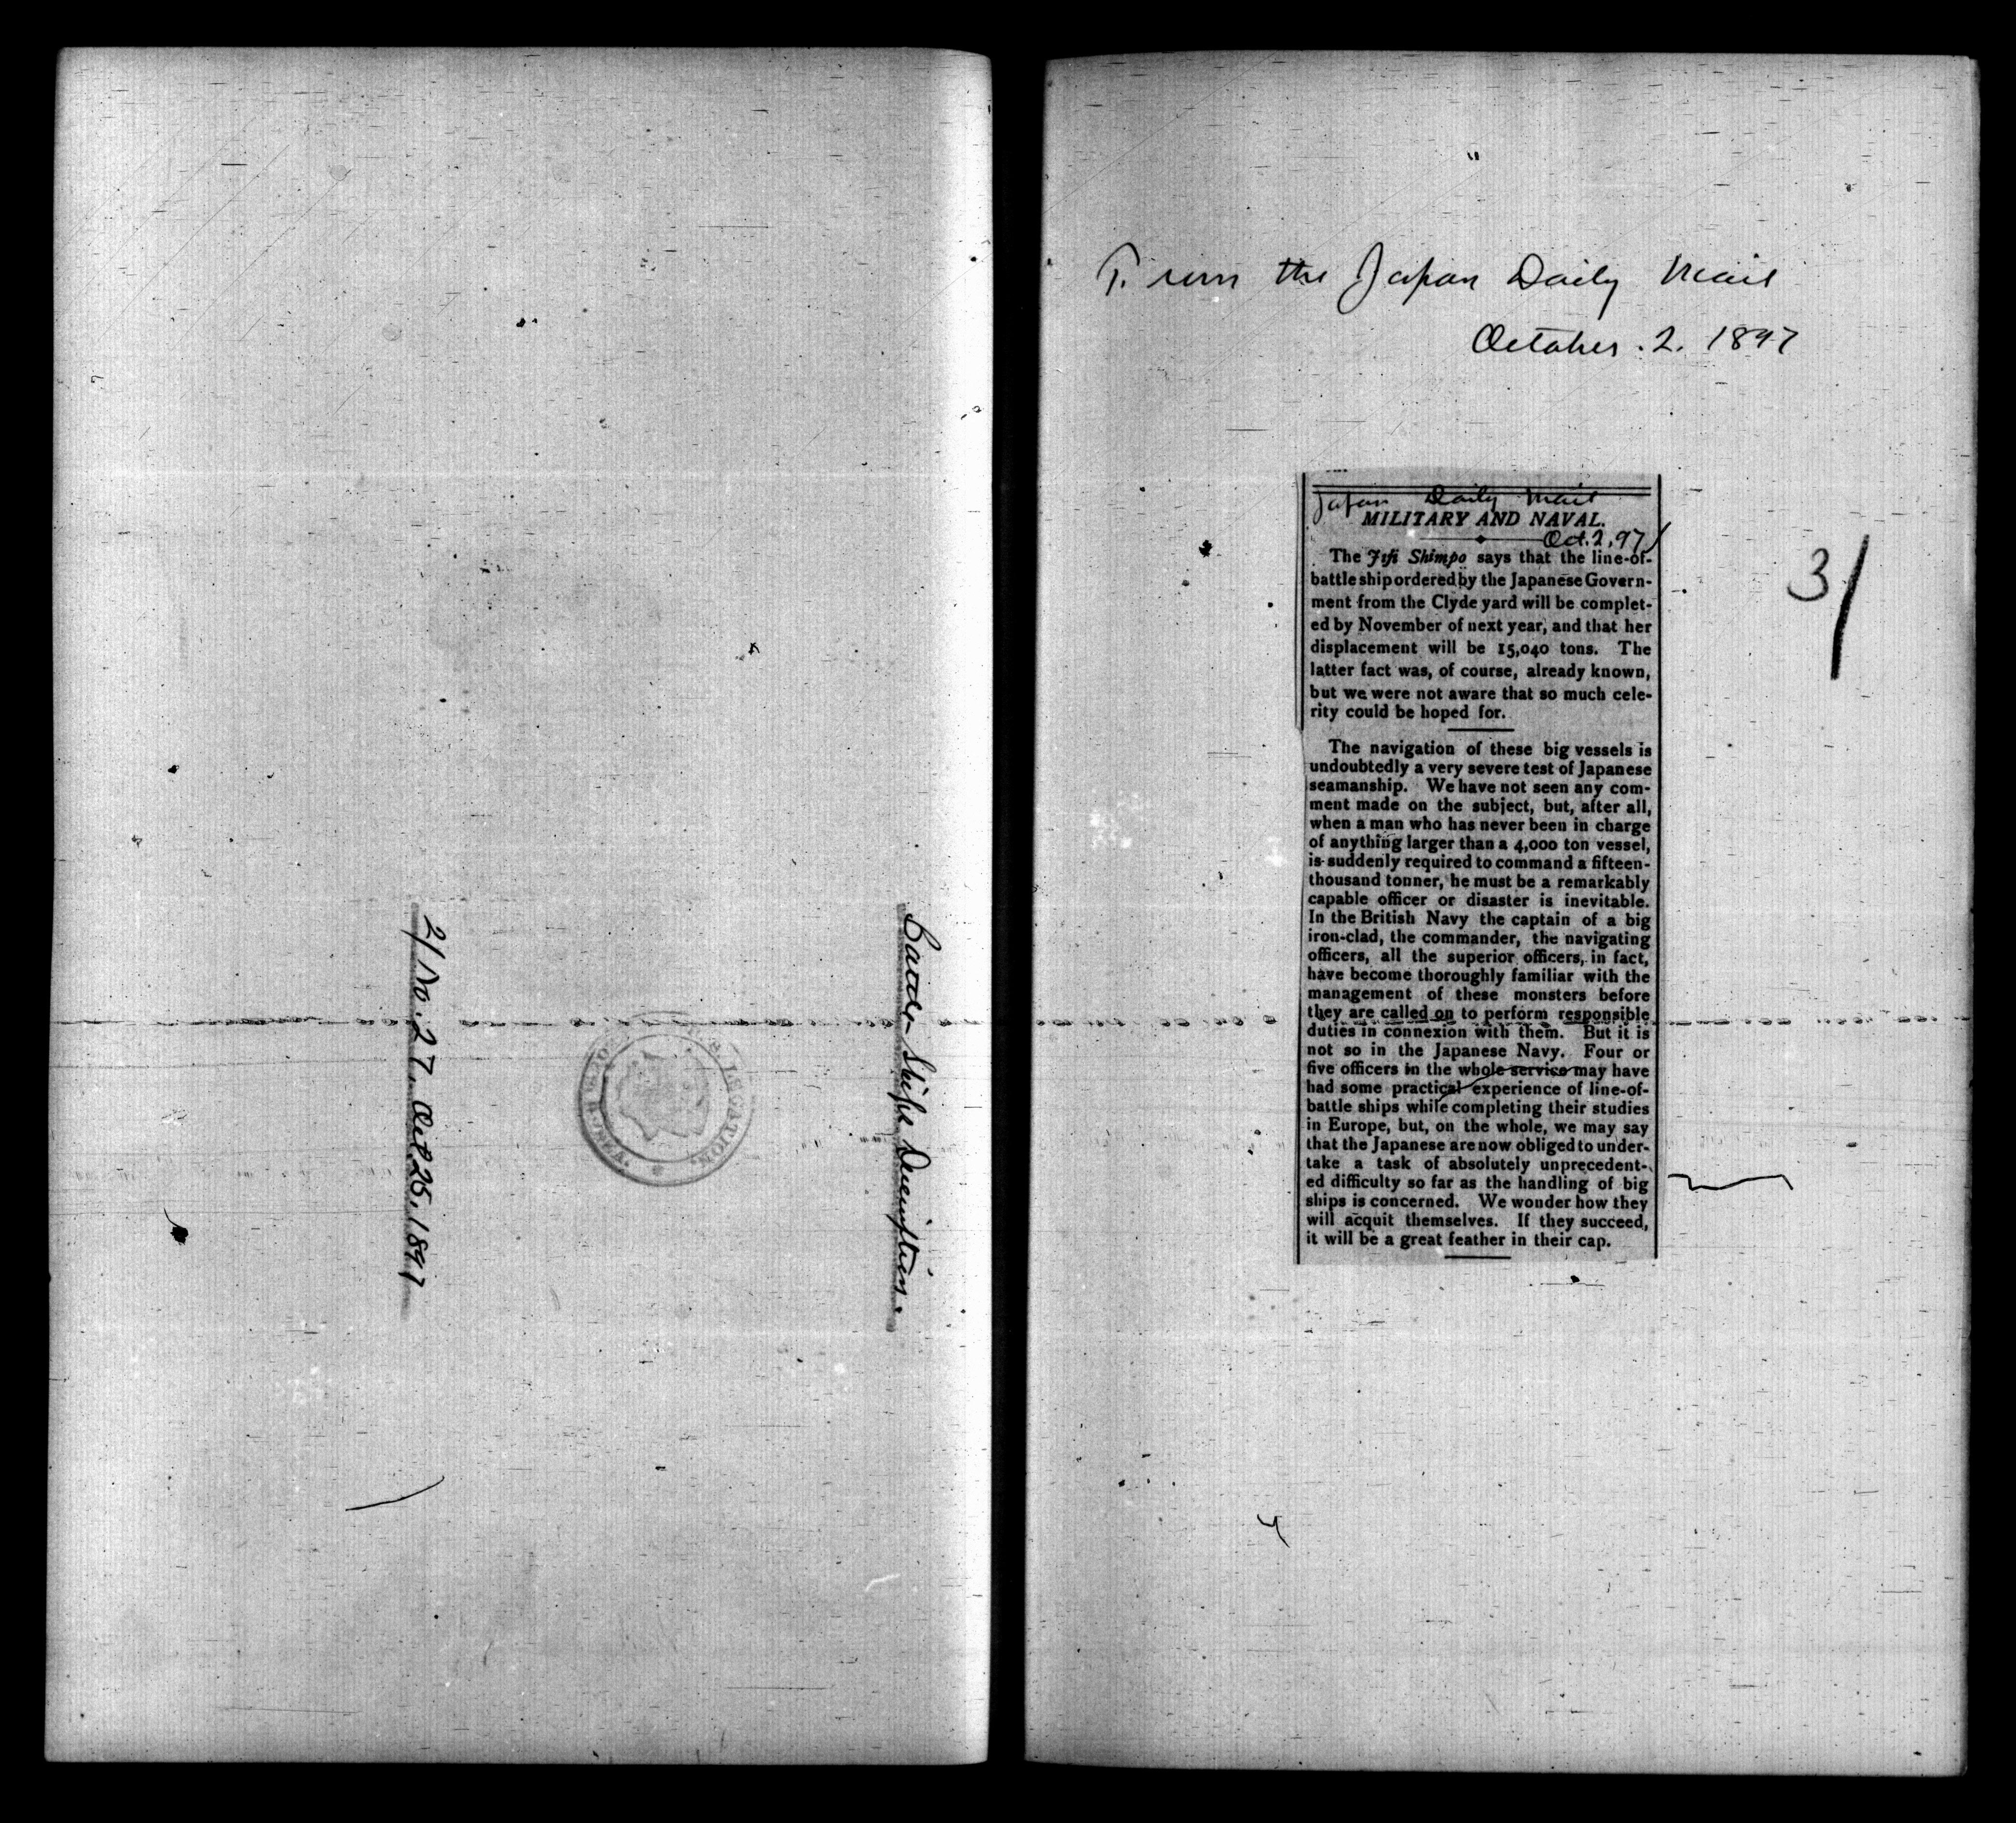 Battle Ships Description.
2/ No. 27. Oct 25, 1897
LEGATION.
From the Japan Daily Mail
October. 2. 1897
3/
Japan Daily Mail
MILITARY AND NAVAL.
Oct. 2, 97
The Jiji Shimpo says that the line-of-
battle ship ordered by the Japanese Govern-
ment from the Clyde yard will be complet-
ed by November of next year, and that her
displacement will be 15,040 tons. The
latter fact was, of course, already known,
but we were not aware that so much cele-
rity could be hoped for.
The navigation of these big vessels is
undoubtedly a very severe test of Japanese
seamanship. We have not seen any com-
ment made on the subject, but, after all,
when a man who has never been in charge
of anything larger than a 4,000 ton vessel,
is suddenly required to command a fifteen-
thousand tonner, he must be a remarkably
capable officer or disaster is inevitable.
In the British Navy the captain of a big
iron-clad, the commander, the navigating
officers, all the superior officers, in fact,
have become thoroughly familiar with the
management of these monsters before
they are called on to perform responsible
duties in connexion with them. But it is
not so in the Japanese Navy. Four or
five officers in the whole service may have
had some practical experience of line-of-
battle ships while completing their studies
in Europe, but, on the whole, we may say
that the Japanese are now obliged to under-
take a task of absolutely unprecedent-
ed difficulty so far as the handling of big
ships is concerned. We wonder how they
will acquit themselves. If they succeed,
it will be a great feather in their cap.